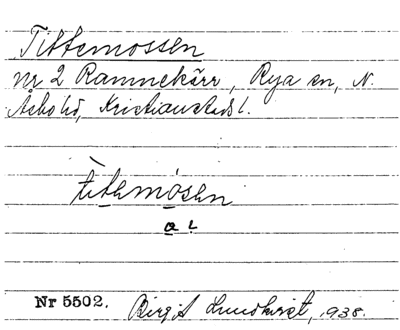 Tittemossen
nr 2 Ramnekärr, Rya sn, N.
Åsbo hd, Kristianstads l.
tìtemósen
a l
Nr 5502. Birgit Lundkvist, 1938.